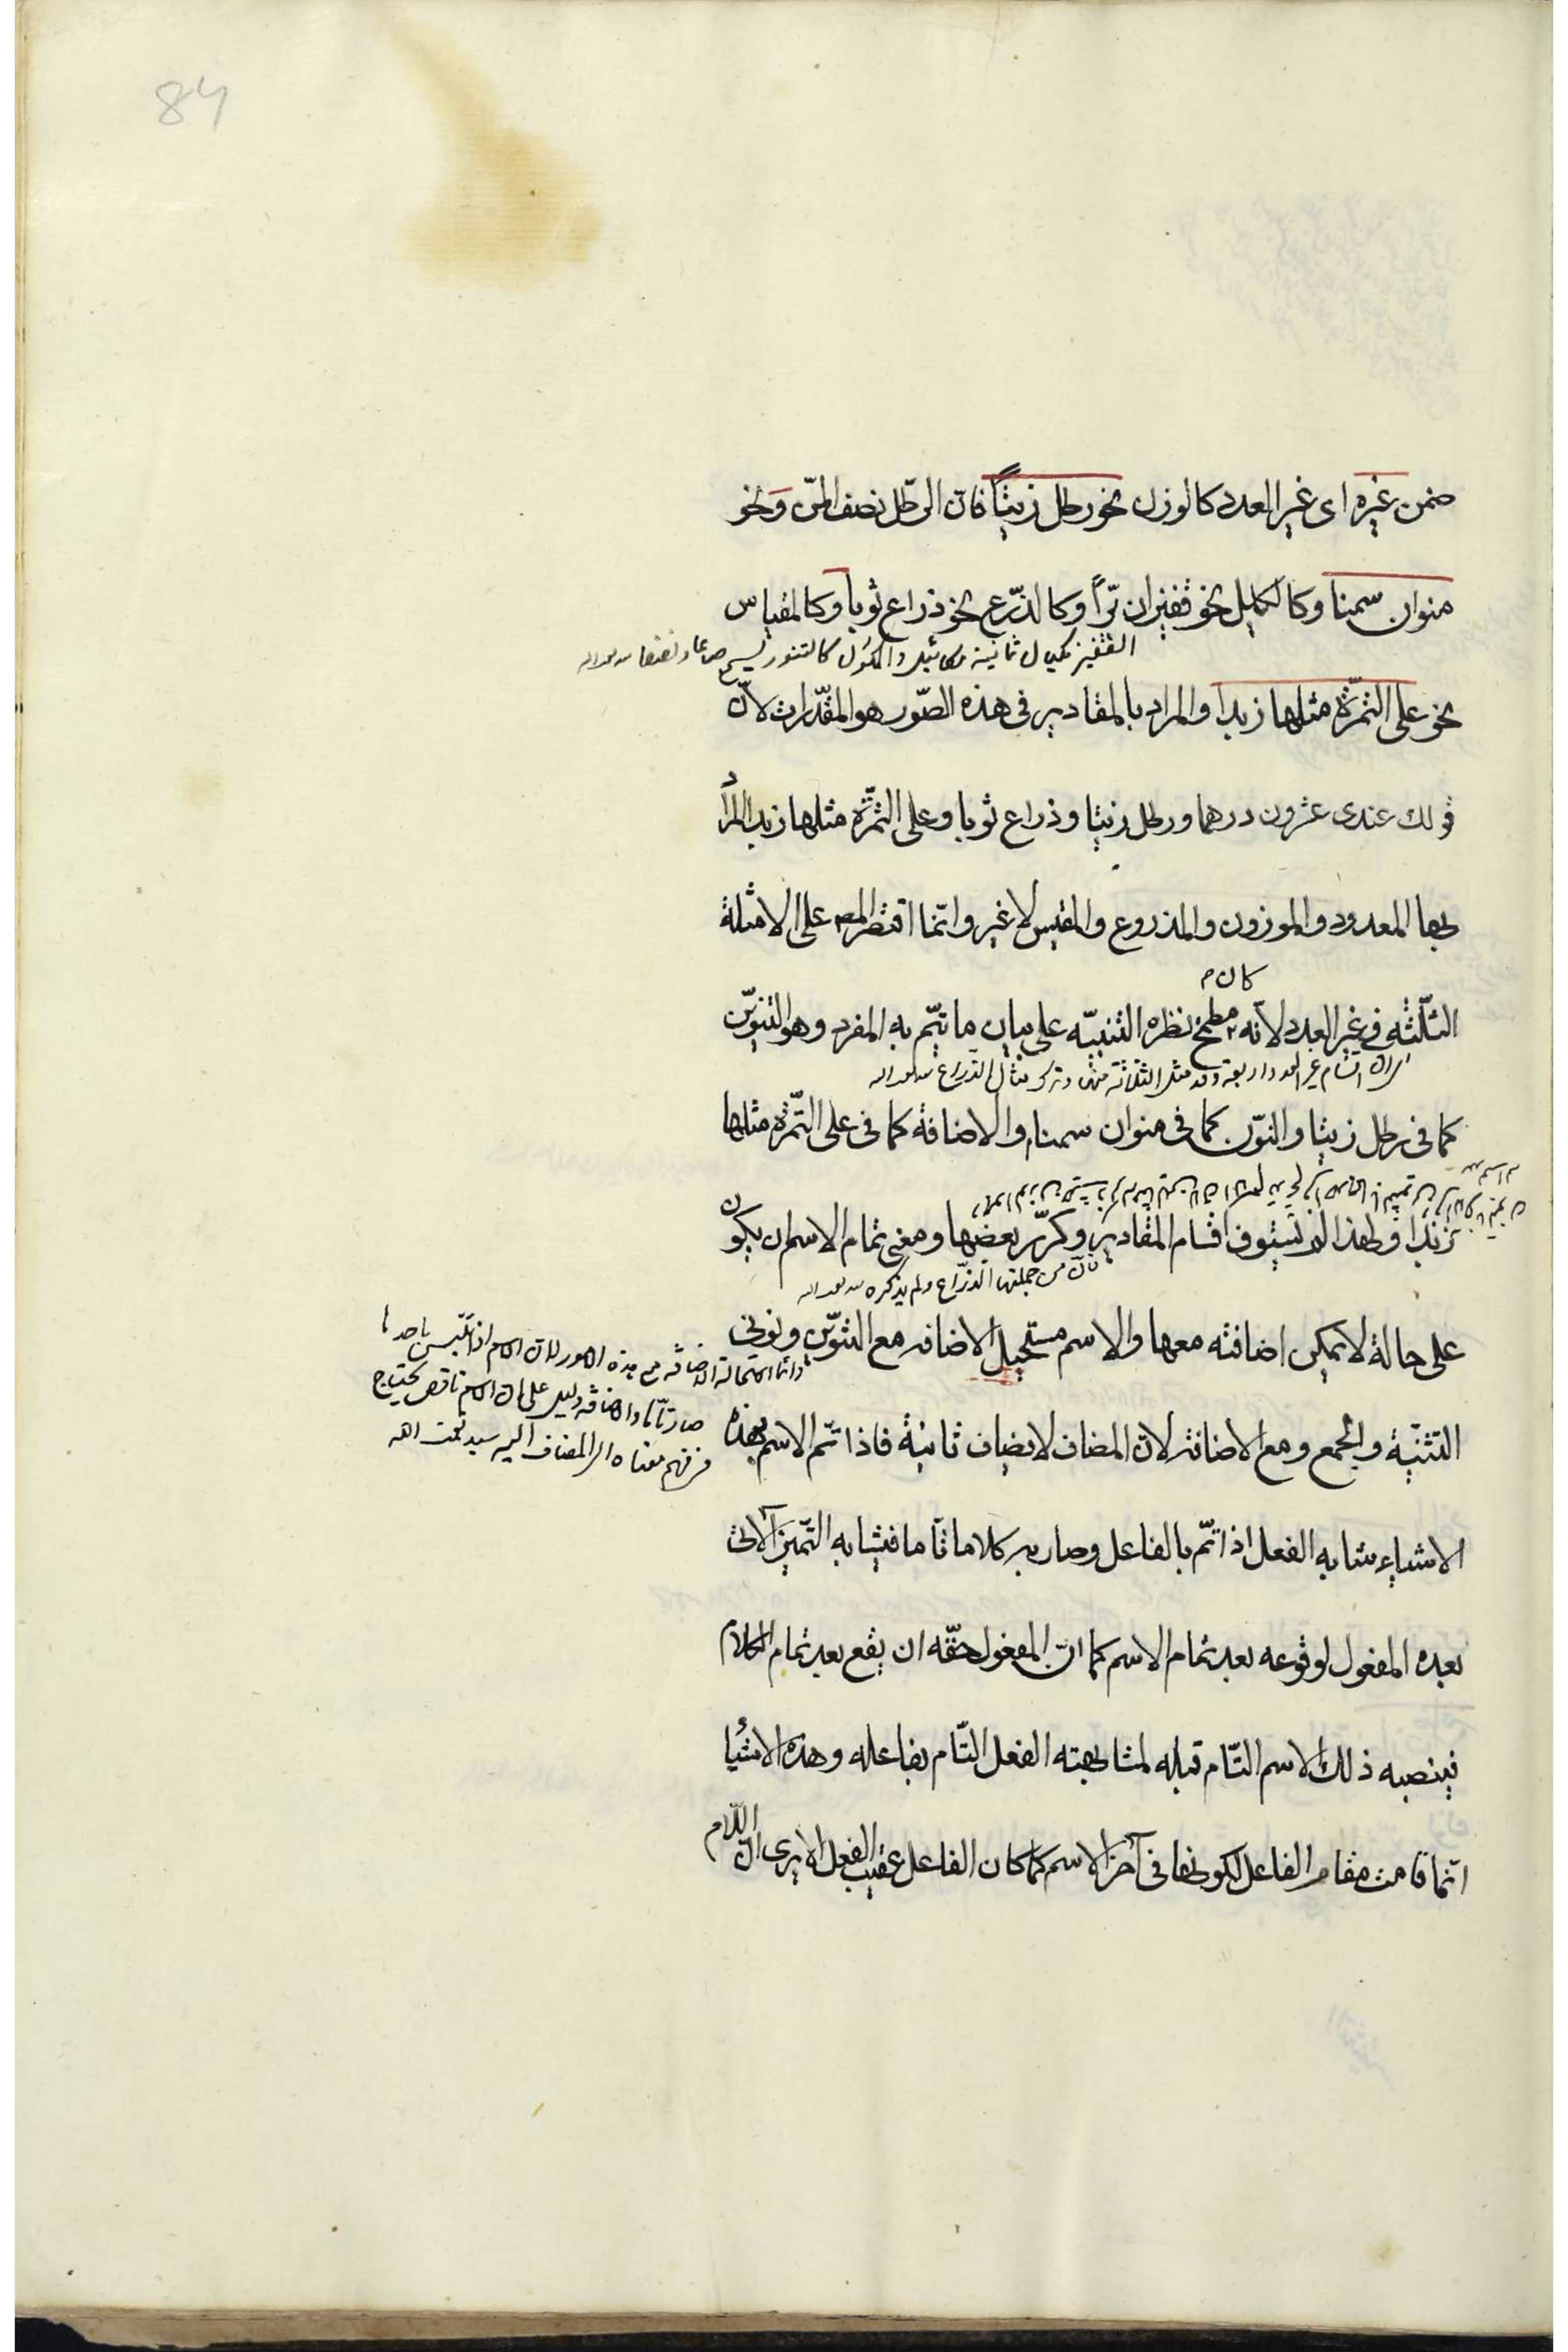 84
ضمن غيره اى غير العدد كالوزن نحو رطل زيتاً فان الرّطل نصف المنّ ونحو
منوان سمنا وكالكيل نحو قفيزان برّاً وكالذّرع نحو ذراع ثوبا وكالمقياس
القفيز مكيال ثمانية مكائيل والمكول كالتنور يسع صاعا ونصفا
نحو على التمرة مثلها زبدا والمراد بالمقادير فى هذه الصّور هو المقدّرات لانّ
قولك عندى عشرون درهما ورطل زيتا وذراع ثوبا وعلى التمرة مثلها زبدا المراد
بها المعدود والموزون والمذروع والمقيس لا غير وانّما اقتصر المص على الامثلة
كان م
الثلثه فى غير العدد لانّه مطمح نظره التنبيه على بيان ما يتمّ به المفرد وهو التنوين
اقسام غير العدد اربعة وقد مثل الثلاثة منها وترك مثال الذراع
كما فى رطل زيتا والنّون كما فى منوان سمنا والاضافة كما فى على التمرة مثلها
زبدا ولهذا لم يستوف اقسام المقادير وكرّر بعضها ومعنى تمام الاسم ان يكون
فان من جملتها الذراع ولم يذكره
على حالة لا يمكن اضافته معها والاسم مستحيل الاضافه مع التنوين ونونى
وانما استحالة الاضافة مع هذه الامور لان الاسم اذا تلبس باحدها
صار تاما والاضافة دليل على ان الاسم ناقص يحتاج
فى فهم معناه الى المضاف اليه سيد نعمت الله
التثنية والجمع ومع الاضافة لانّ المضاف لا يضاف ثانية فاذا تمّ الاسم بهذه
الاشياء شابه الفعل اذا تمّ بالفاعل وصار به كلاما تاما فيشابه التميز الاتى
بعده المفعول لوقوعه بعد تمام الاسم كما انّ المفعول حقّه ان يقع بعد تمام الكلام
فينصبه ذلك الاسم التّام قبله لمشابهته الفعل التّام بفاعله وهذه الاشياء
انّما قامت مقام الفاعل لكونها فى آخر الاسم كما كان الفاعل عقيب الفعل الا يرى انّ اللّام